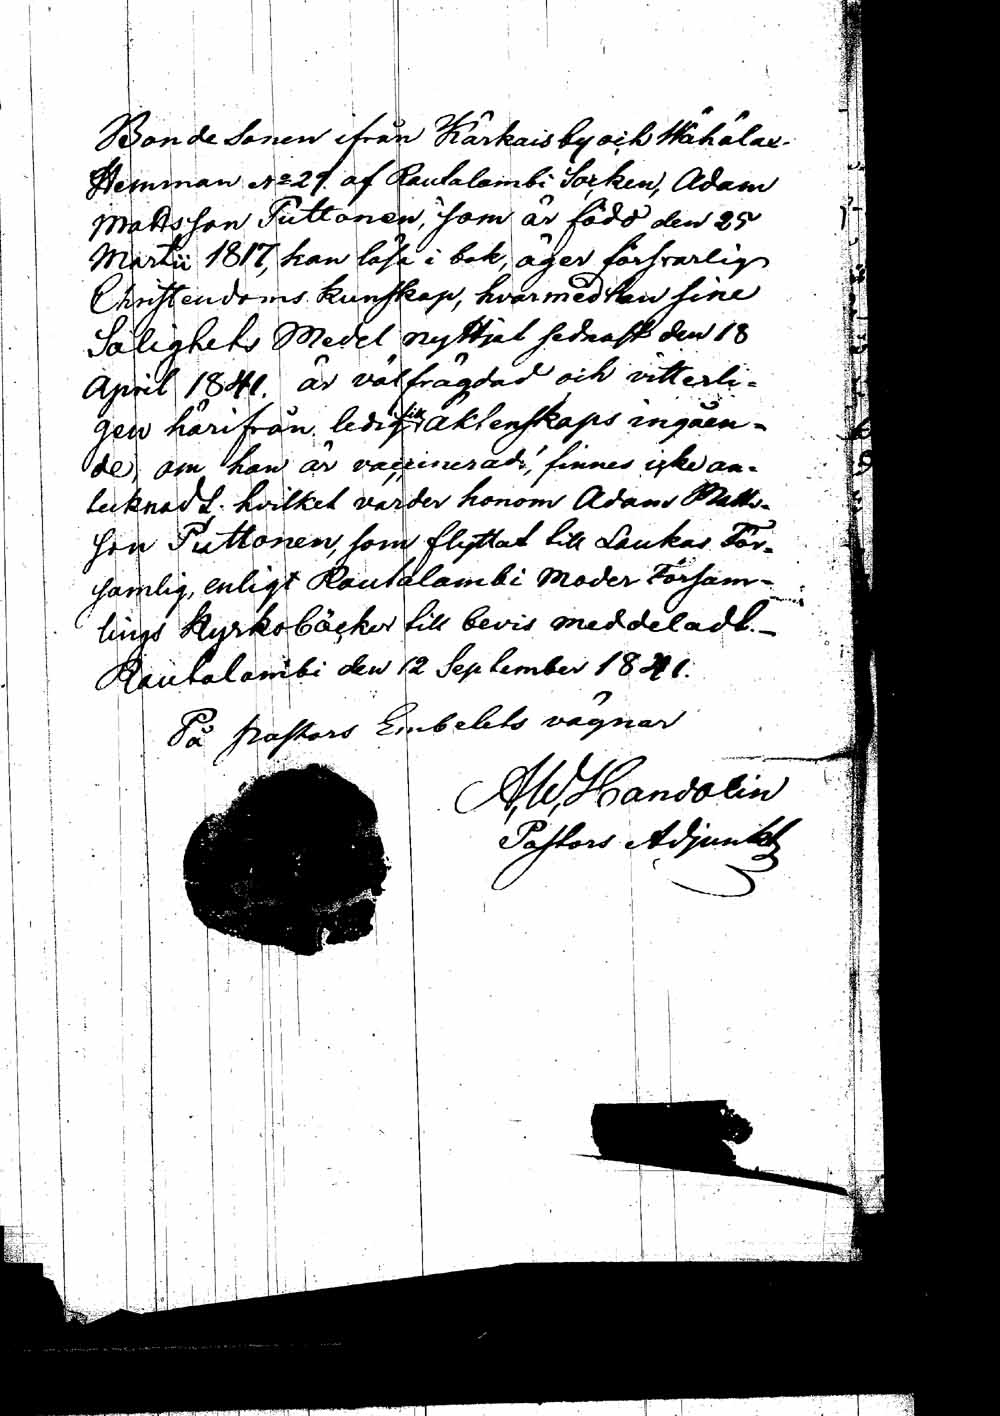 Bonde Sonen ifrån Kärkais by och Wähälax
Hemman No 29. af Rautalambi Socken, Adam
Mattsson Puttonen, som är född den 25
Martii 1817, kan läsa i bok, äger försvarlig
Christendoms kunskap, hvarmed han sine
Salighets Medel nyttjat sednast den 18
April 1841. är välfrägdad och vitterli-
gen härifrån ledig till Äktenskaps ingåen-
de, om han är vaccinerad, finnes icke an-
tecknadt. hvilket varder honom Adam Matts-
son Puttonen, som flyttat till Laukas För-
samlig, enligt Rautalambi Moder Försam-
lings Kyrkoböcker till bevis meddeladt.-
Rautalambi den 12 September 1841.
På pastors Embetets vägnar
A,W,Handolin
Pastors Adjunkt